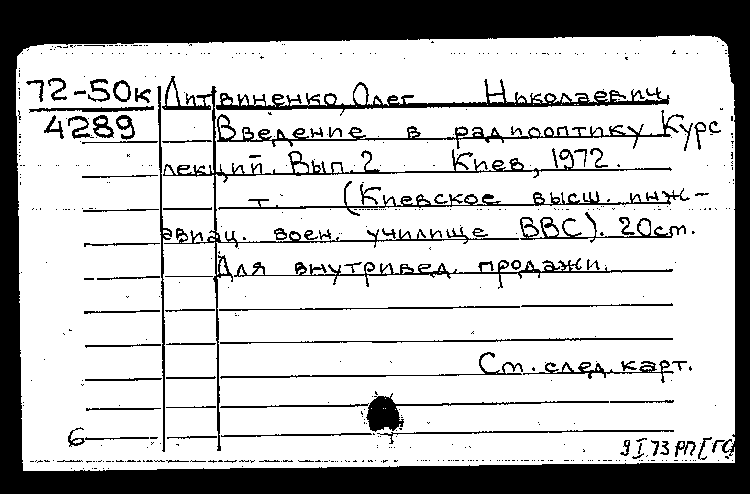 72-50к Литвиненко, Олег Николаевич.
4289 Введение в радиооптику. Курс
лекций. Вып. 2 Киев, 1972.
т. (Киевское высш. инж-
авиац. воен. училище ВВС). 20см.
Для внутривед. продажи.
См. след. карт.
6
9 I 73 РП [ГО